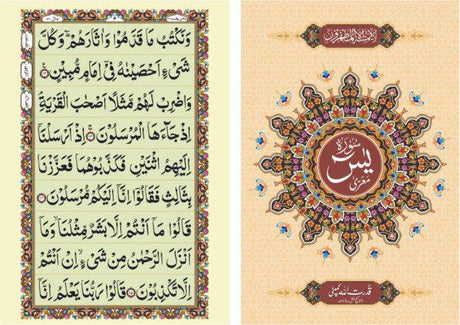 وَنَكْتُبُ مَا قَدَّمُوْا وَاٰثَارَهُمْ ۛؕ وَكُلَّ
شَیْءٍ اَحْصَیْنٰهُ فِیْۤ اِمَامٍ مُّبِیْنٍ
وَاضْرِبْ لَهُمْ مَّثَلًا اَصْحٰبَ الْقَرْیَةِ
اِذْ جَآءَهَا الْمُرْسَلُوْنَ اِذْ اَرْسَلْنَاۤ
اِلَیْهِمُ اثْنَیْنِ فَكَذَّبُوْهُمَا فَعَزَّزْنَا
بِثَالِثٍ فَقَالُوْۤا اِنَّاۤ اِلَیْكُمْ مُّرْسَلُوْنَ
قَالُوْا مَاۤ اَنْتُمْ اِلَّا بَشَرٌ مِّثْلُنَا ۙ وَمَاۤ
اَنْزَلَ الرَّحْمٰنُ مِنْ شَیْءٍ ۙ اِنْ اَنْتُمْ
اِلَّا تَكْذِبُوْنَ قَالُوْا رَبُّنَا یَعْلَمُ اِنَّاۤ
سورہ
یٰسٓ
مغربی
قدرت اللہ کمپنی